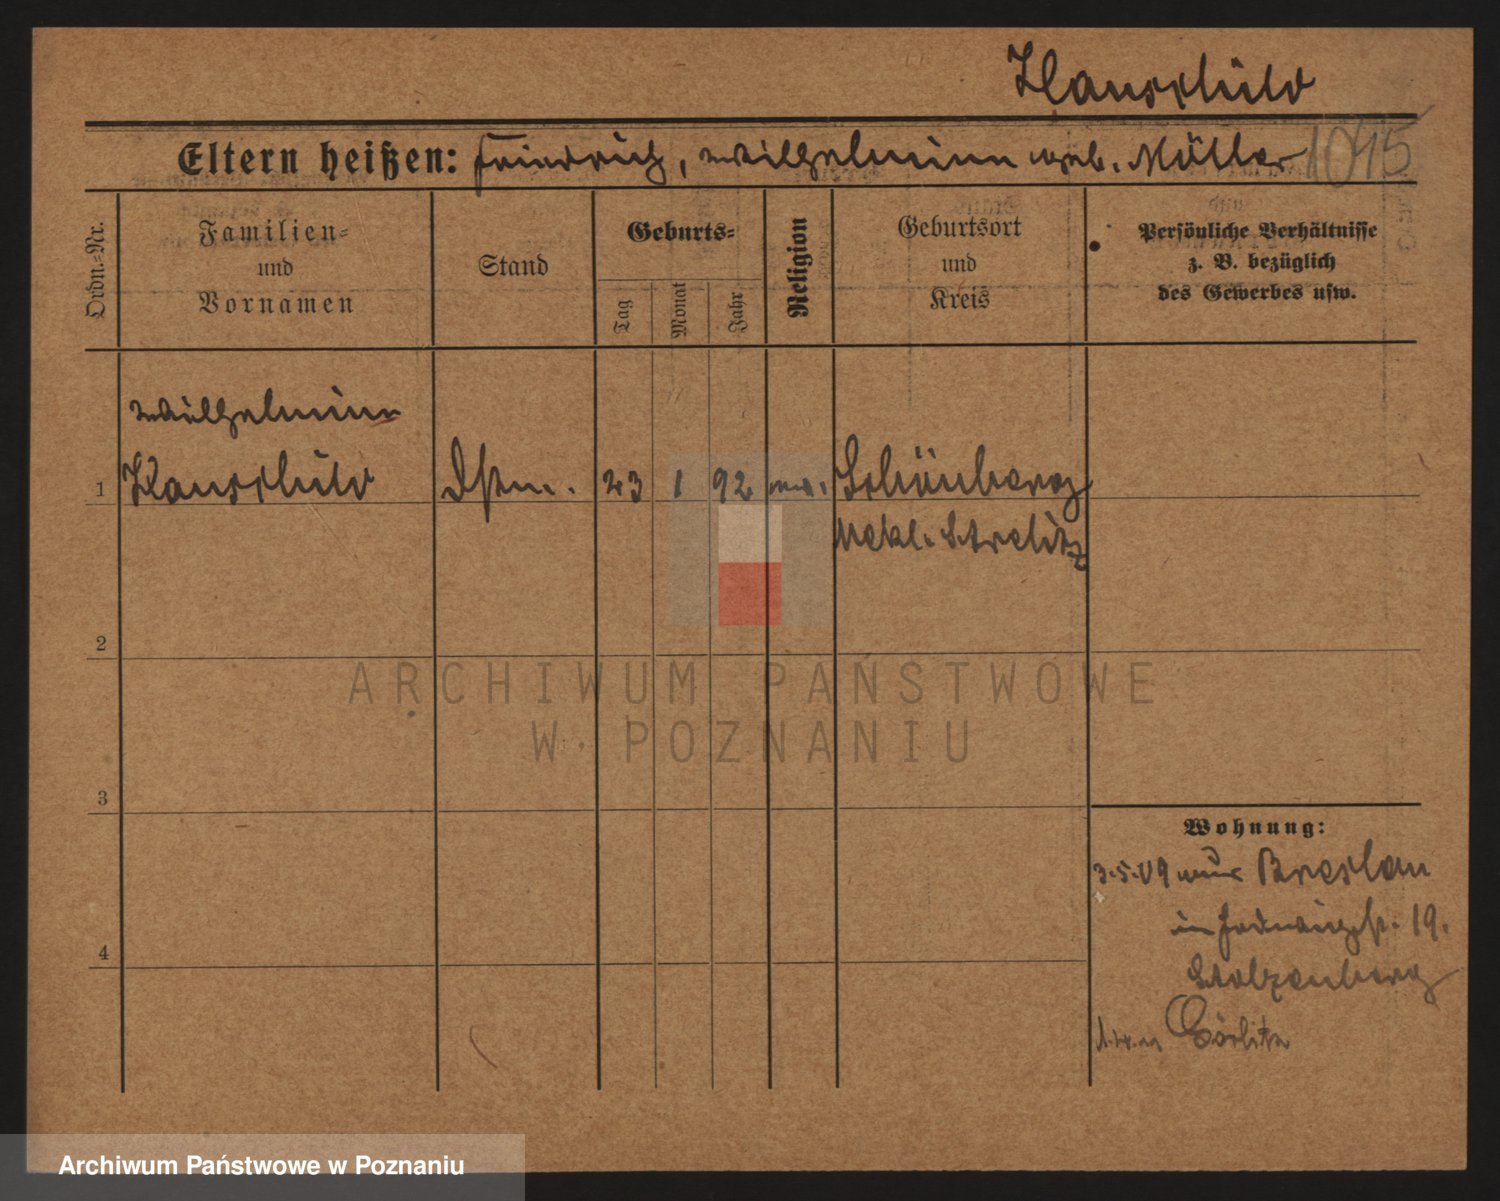 Hauschild
Eltern heißen: Friedrich, Wilhelmine geb. Müller 1045
Ordn.-Nr.
Familien-
und
Vornamen
Stand
Geburts-
Tag
Monat
Jahr
Religion
Geburtsort
und
Kreis
Persönliche Verhältnisse
z. B. bezüglich
des Gewerbes usw.
Wilhelmine
1 Hauschild 23 1 92 Schönberg
Mekl. Strelitz
2
3
4
Wohnung:
3.5.09 Breslau
19.
Stolzenberg
Görlitz
ARCHIWUM PAŃSTWOWE
W POZNANIU
Archiwum Państwowe w Poznaniu